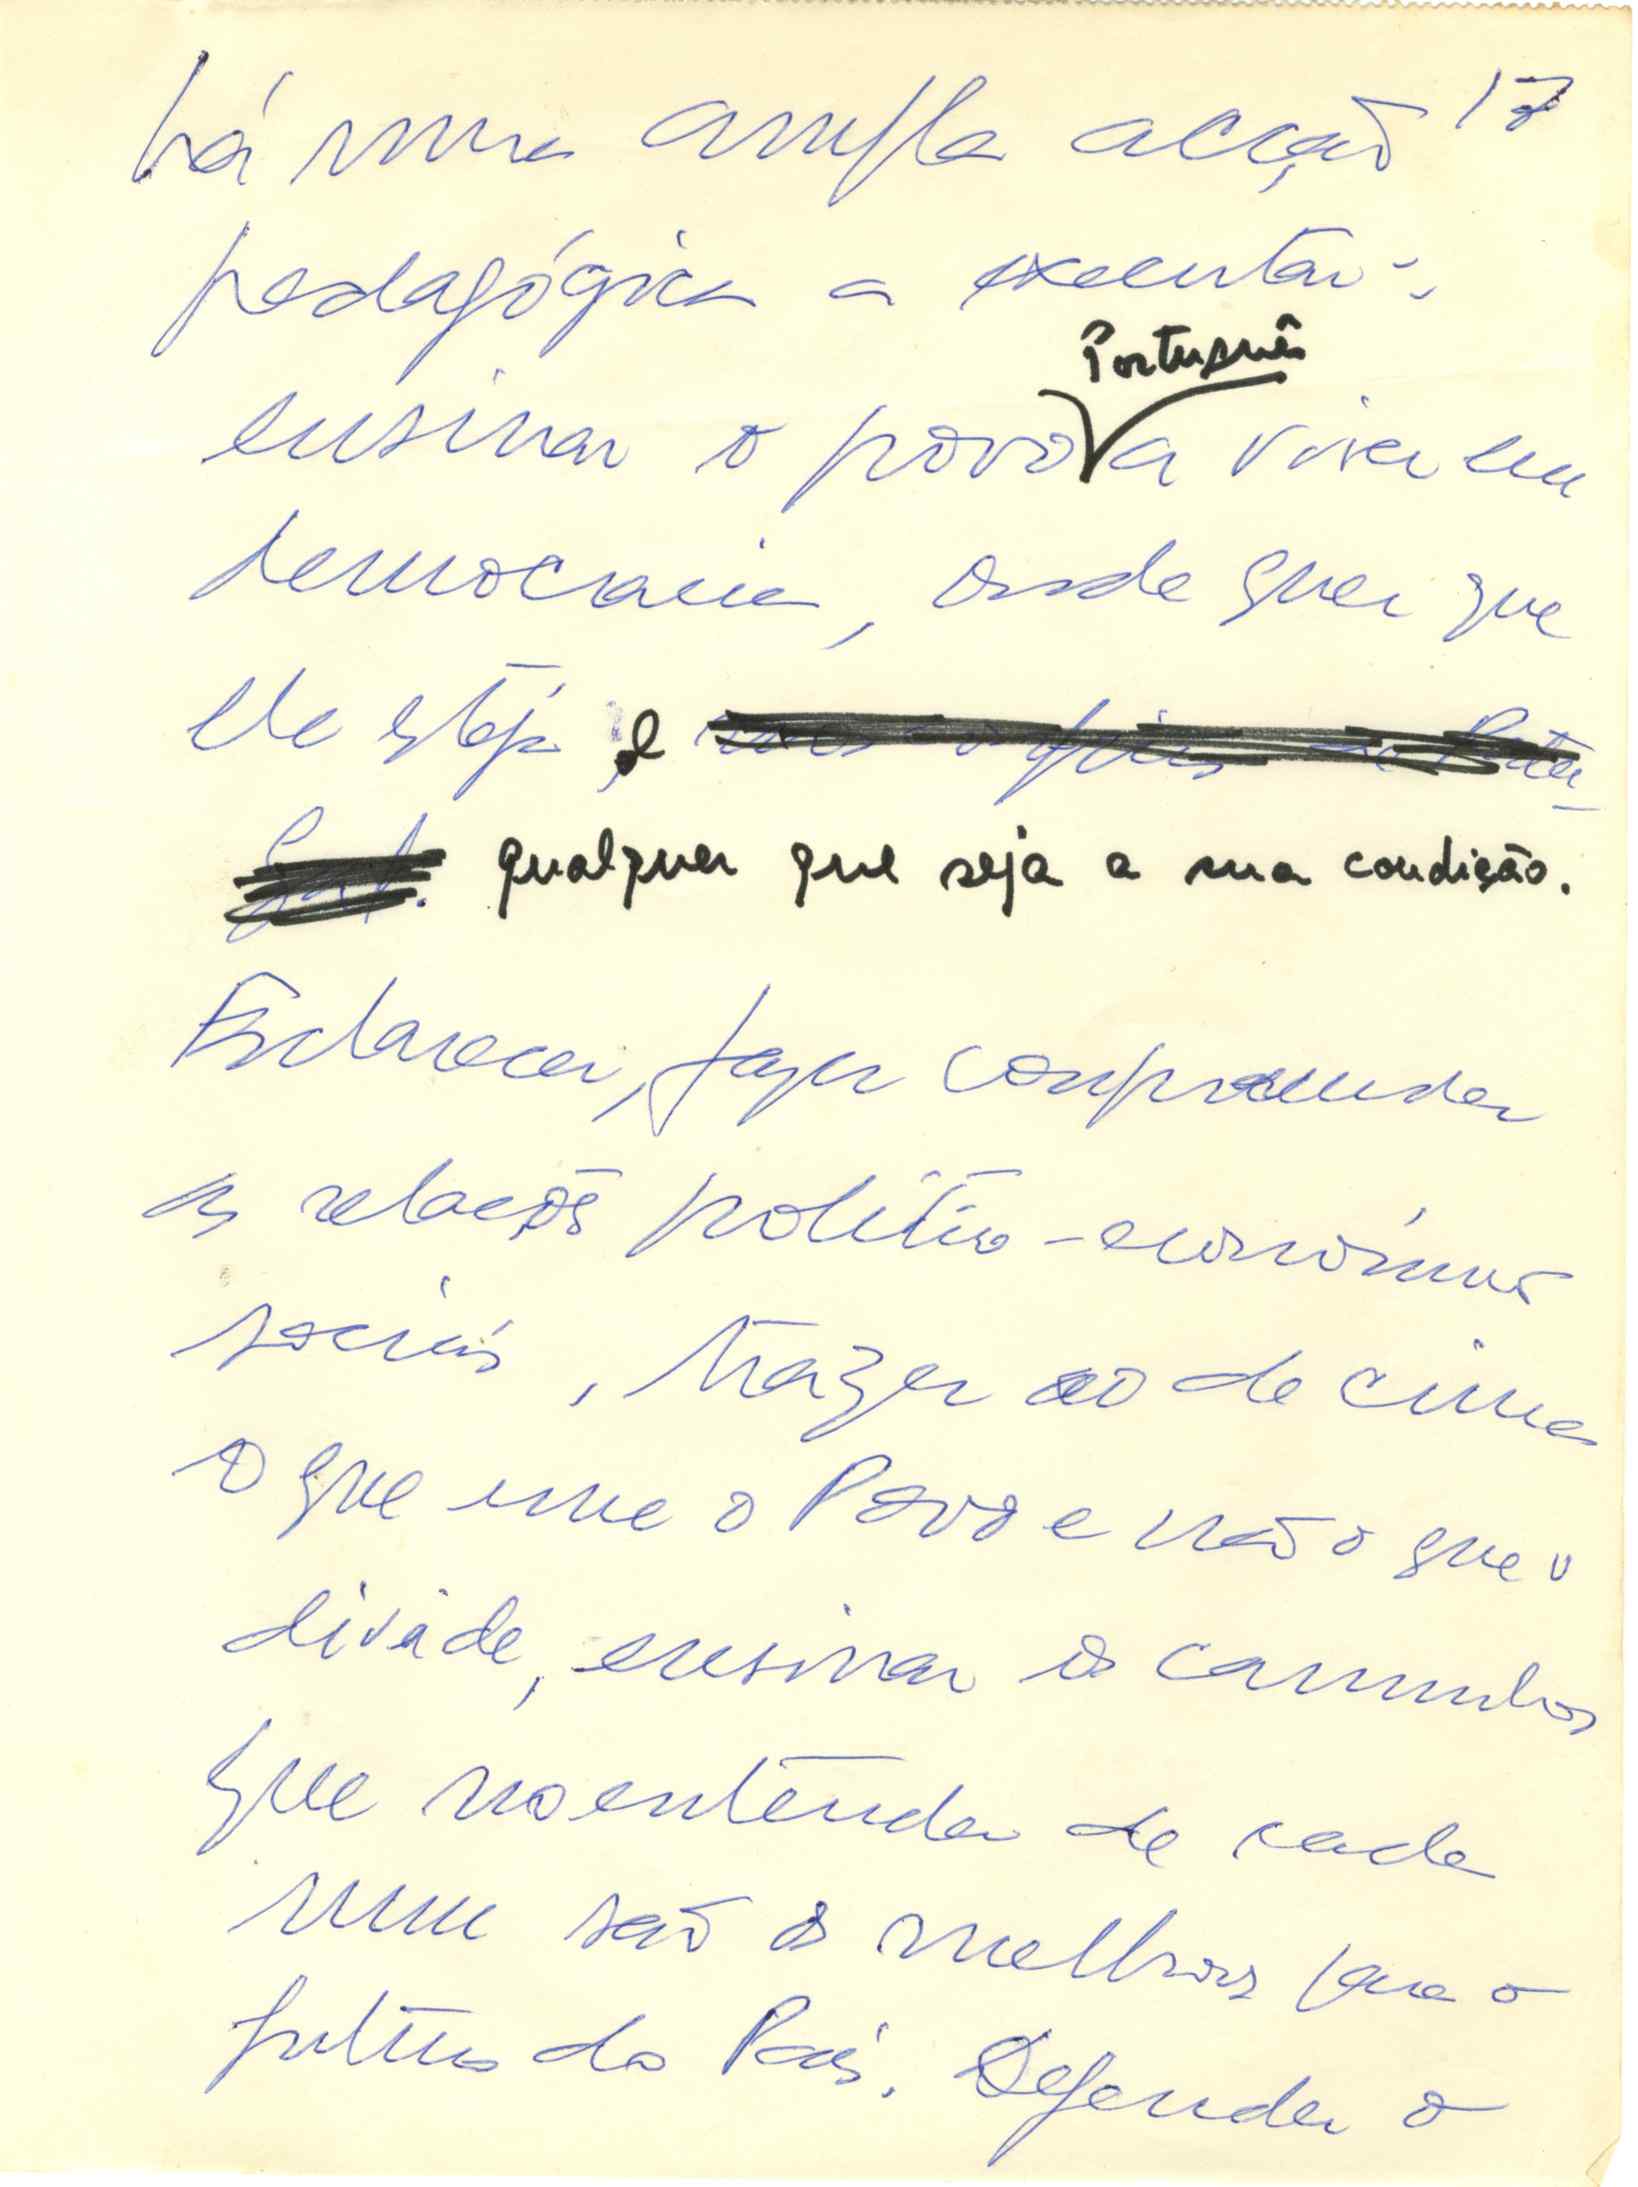 há uma ampla acção 17
pedagógica a executar:
Português
ensinar o povo a viver em
democracia, onde quer que
ele esteja, e
qualquer que seja a sua condição.
Esclarecer, fazer compreender
as relações político-económicas
sociais, trazer ao de cima
o que une o Povo e não o que o
divide, ensinar os caminhos
que no entender de cada
um são os melhores para o
futuro do País. Defender o